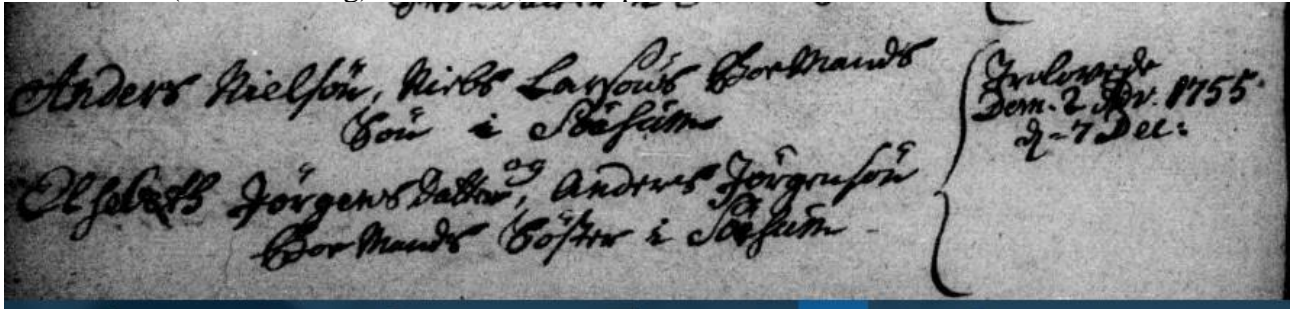 Anders Nielsön, Niels Larsöns Boemands
Sön i Söesum
og
Elsebeth Jörgensdatter, Anders Jörgensön
Boe Mands Söster i Söesum
Trolovede
Dom. 2 Adv. 1755
d. 7 Dec: